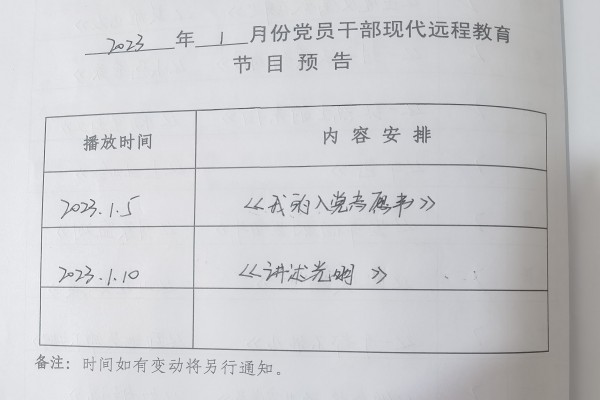 2023 年 1 月份党员干部现代远程教育
节目预告
播放时间 内容安排
2023.1.5 《我的入党志愿书》
2023.1.10 《讲述光明》
备注：时间如有变动将另行通知。